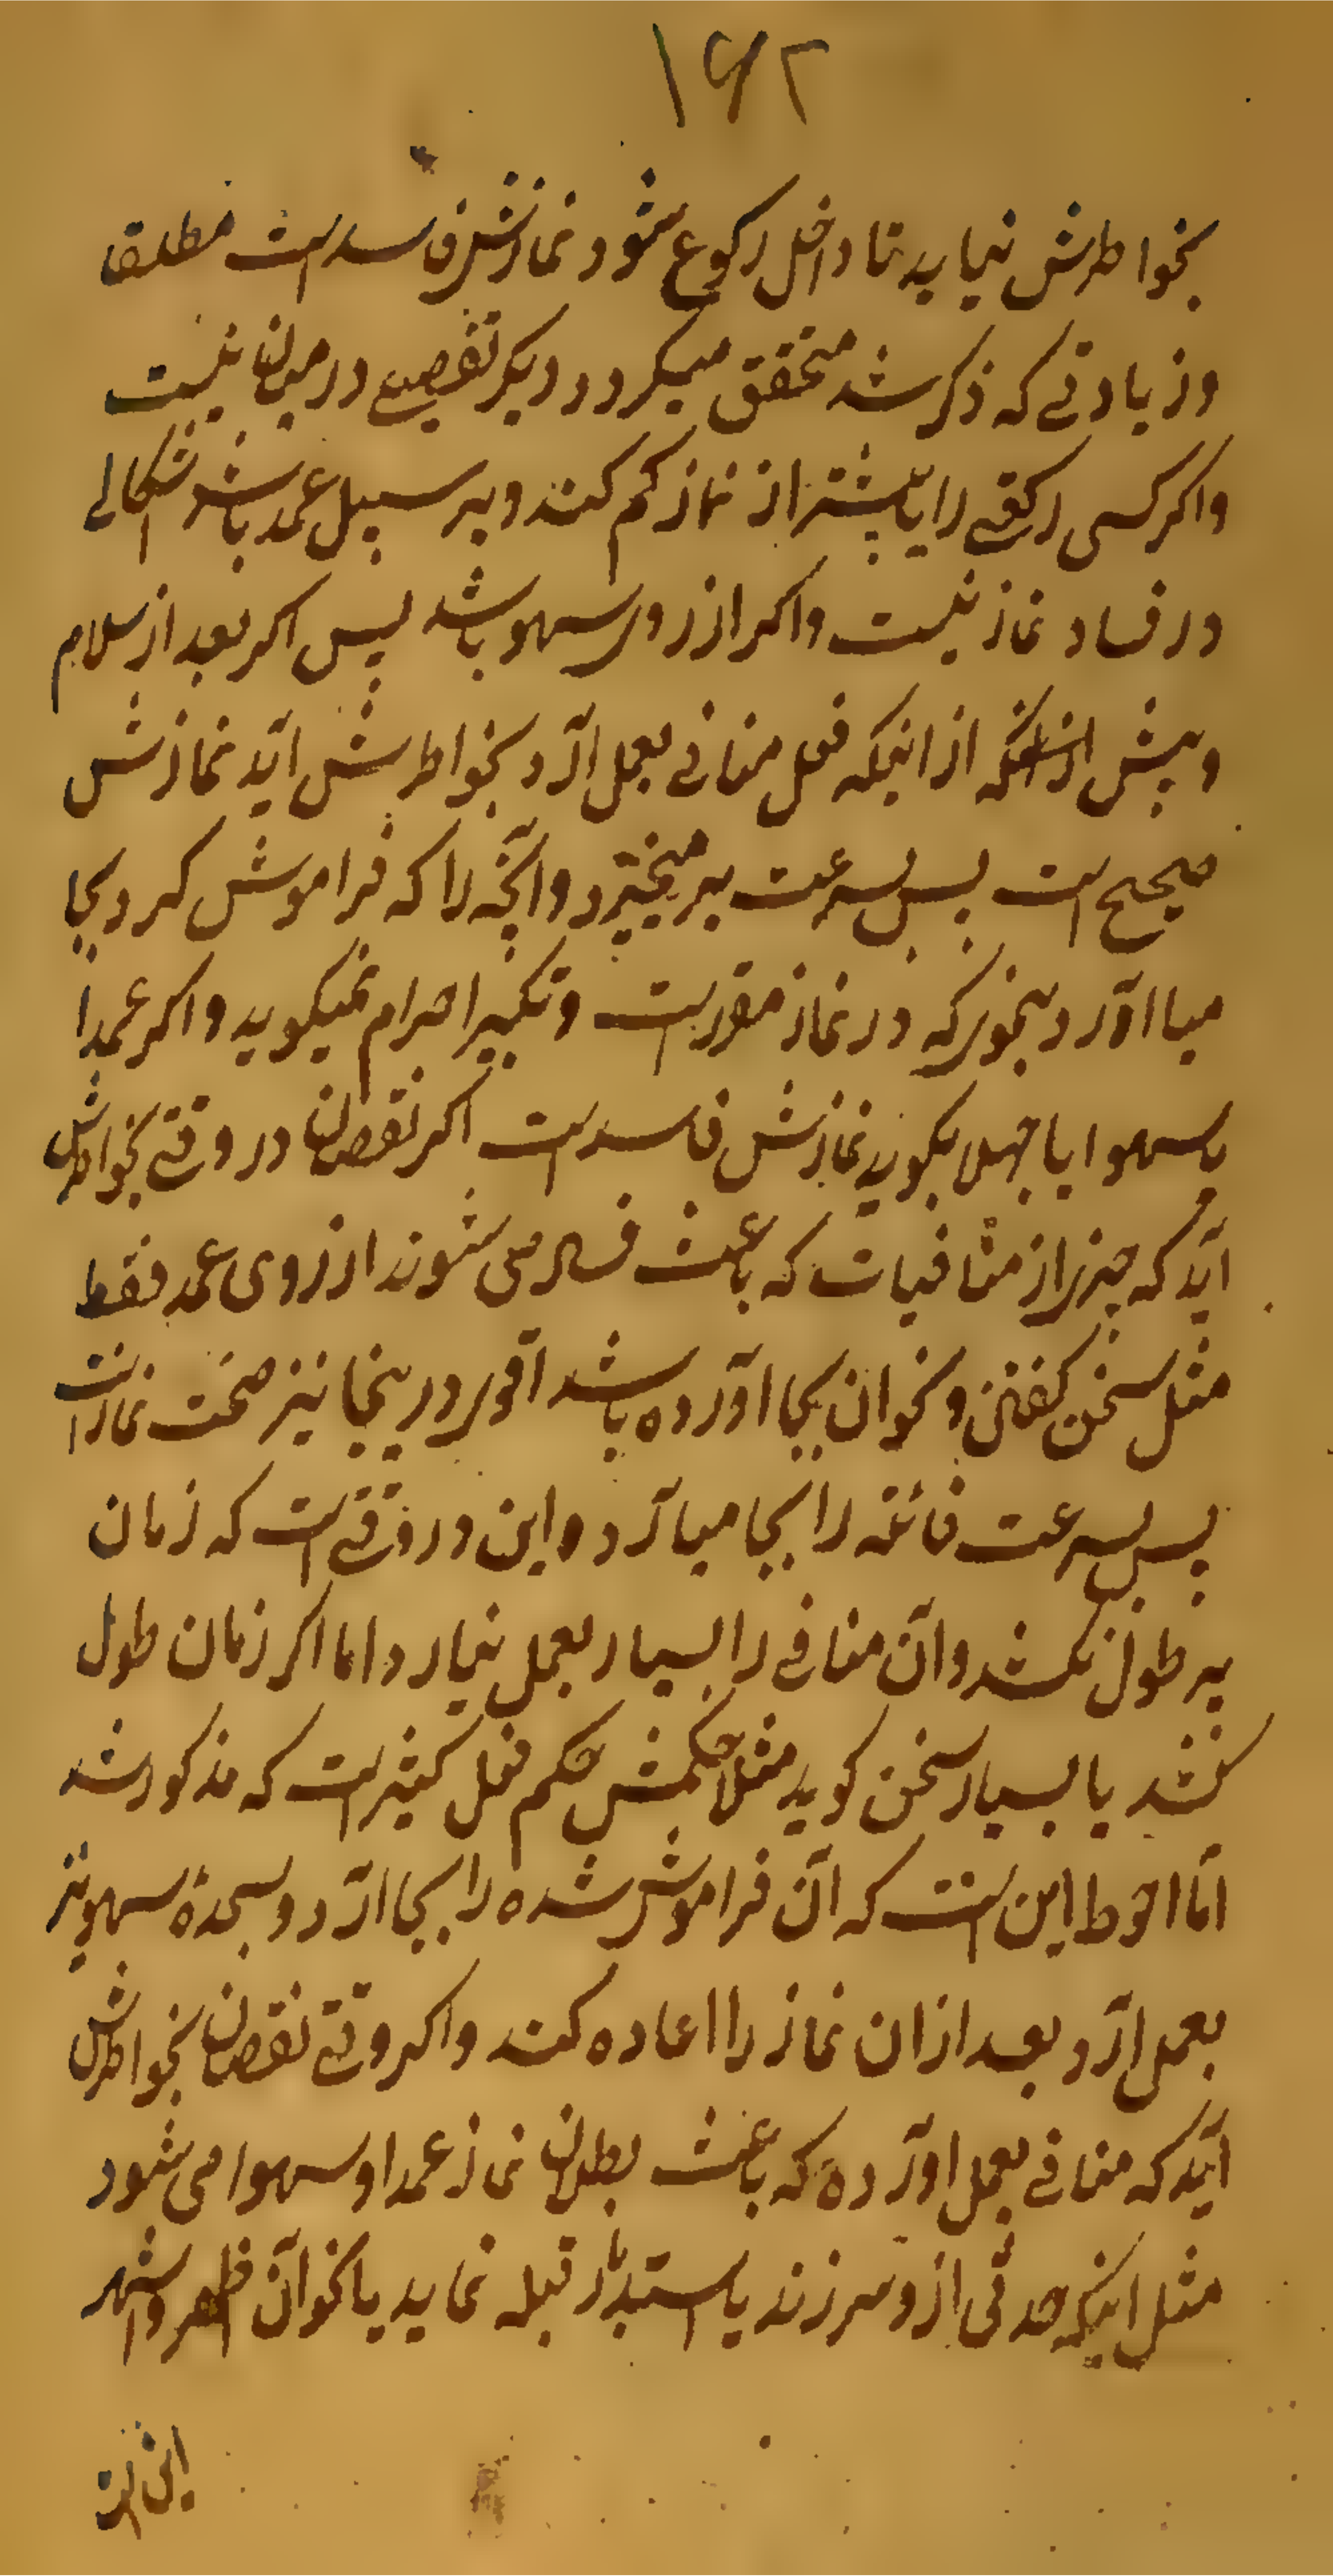 ۱۶۲
بخواطرش نیاید تا داخل رکوع شود نمازش فاسد است مطلقا
و زیادتی که ذکر شد متحقق میکردد دیکر تفصیلی در میان نیست
و اکر کسی رکعتی را یا بیشتر از نماز کم کند و بر سبیل عمد باشد اشکالی
در فساد نماز نیست و اکر از روی سهو باشد پس اکر بعد از سلام
و پیش از اینکه فعل منافی بعمل ارد بخواطرش اید نمازش
صحیح است پس بسرعت بر میخیزد و آنچه را که فراموش کرد بجا
میا اورد بنحوی که در نماز مقرر است و تکبیر احرام نمیکوید و اکر عمدا
یا سهوا یا جهلا بکوید نمازش فاسد است اکر نقصان در وقتی بخواطرش
اید که چیزی از منافیات که باعث فساد می شوند از روی عمد فقط
مثل سخن کفتن و نحو ان بجا اورده باشد اقوی در ینجا نیز صحت نماز است
پس بسرعت فائته را بجا میارد و این در وقتی است که زمان
بر طول نکشد و آن منافی را بسیار بعمل نیارد و اما اکر زمان طول
کشد یا بسیار سخن کوید مثلا حکمش حکم فعل کثیر است که مذکور شد
اما احوط این است که آن فراموش شده را بجا ارد و سجدهٔ سهو نیز
بعمل ارد بعد از ان نماز را اعاده کند و اکر وقتی نقصان بخواطرش
اید که منافی بعمل اورده که باعث بطلان نماز عمدا و سهوا می شود
مثل اینکه حدثی از و سر زند یا استدبار قبله نماید یا نحو آن اظهر و اشهر
این است